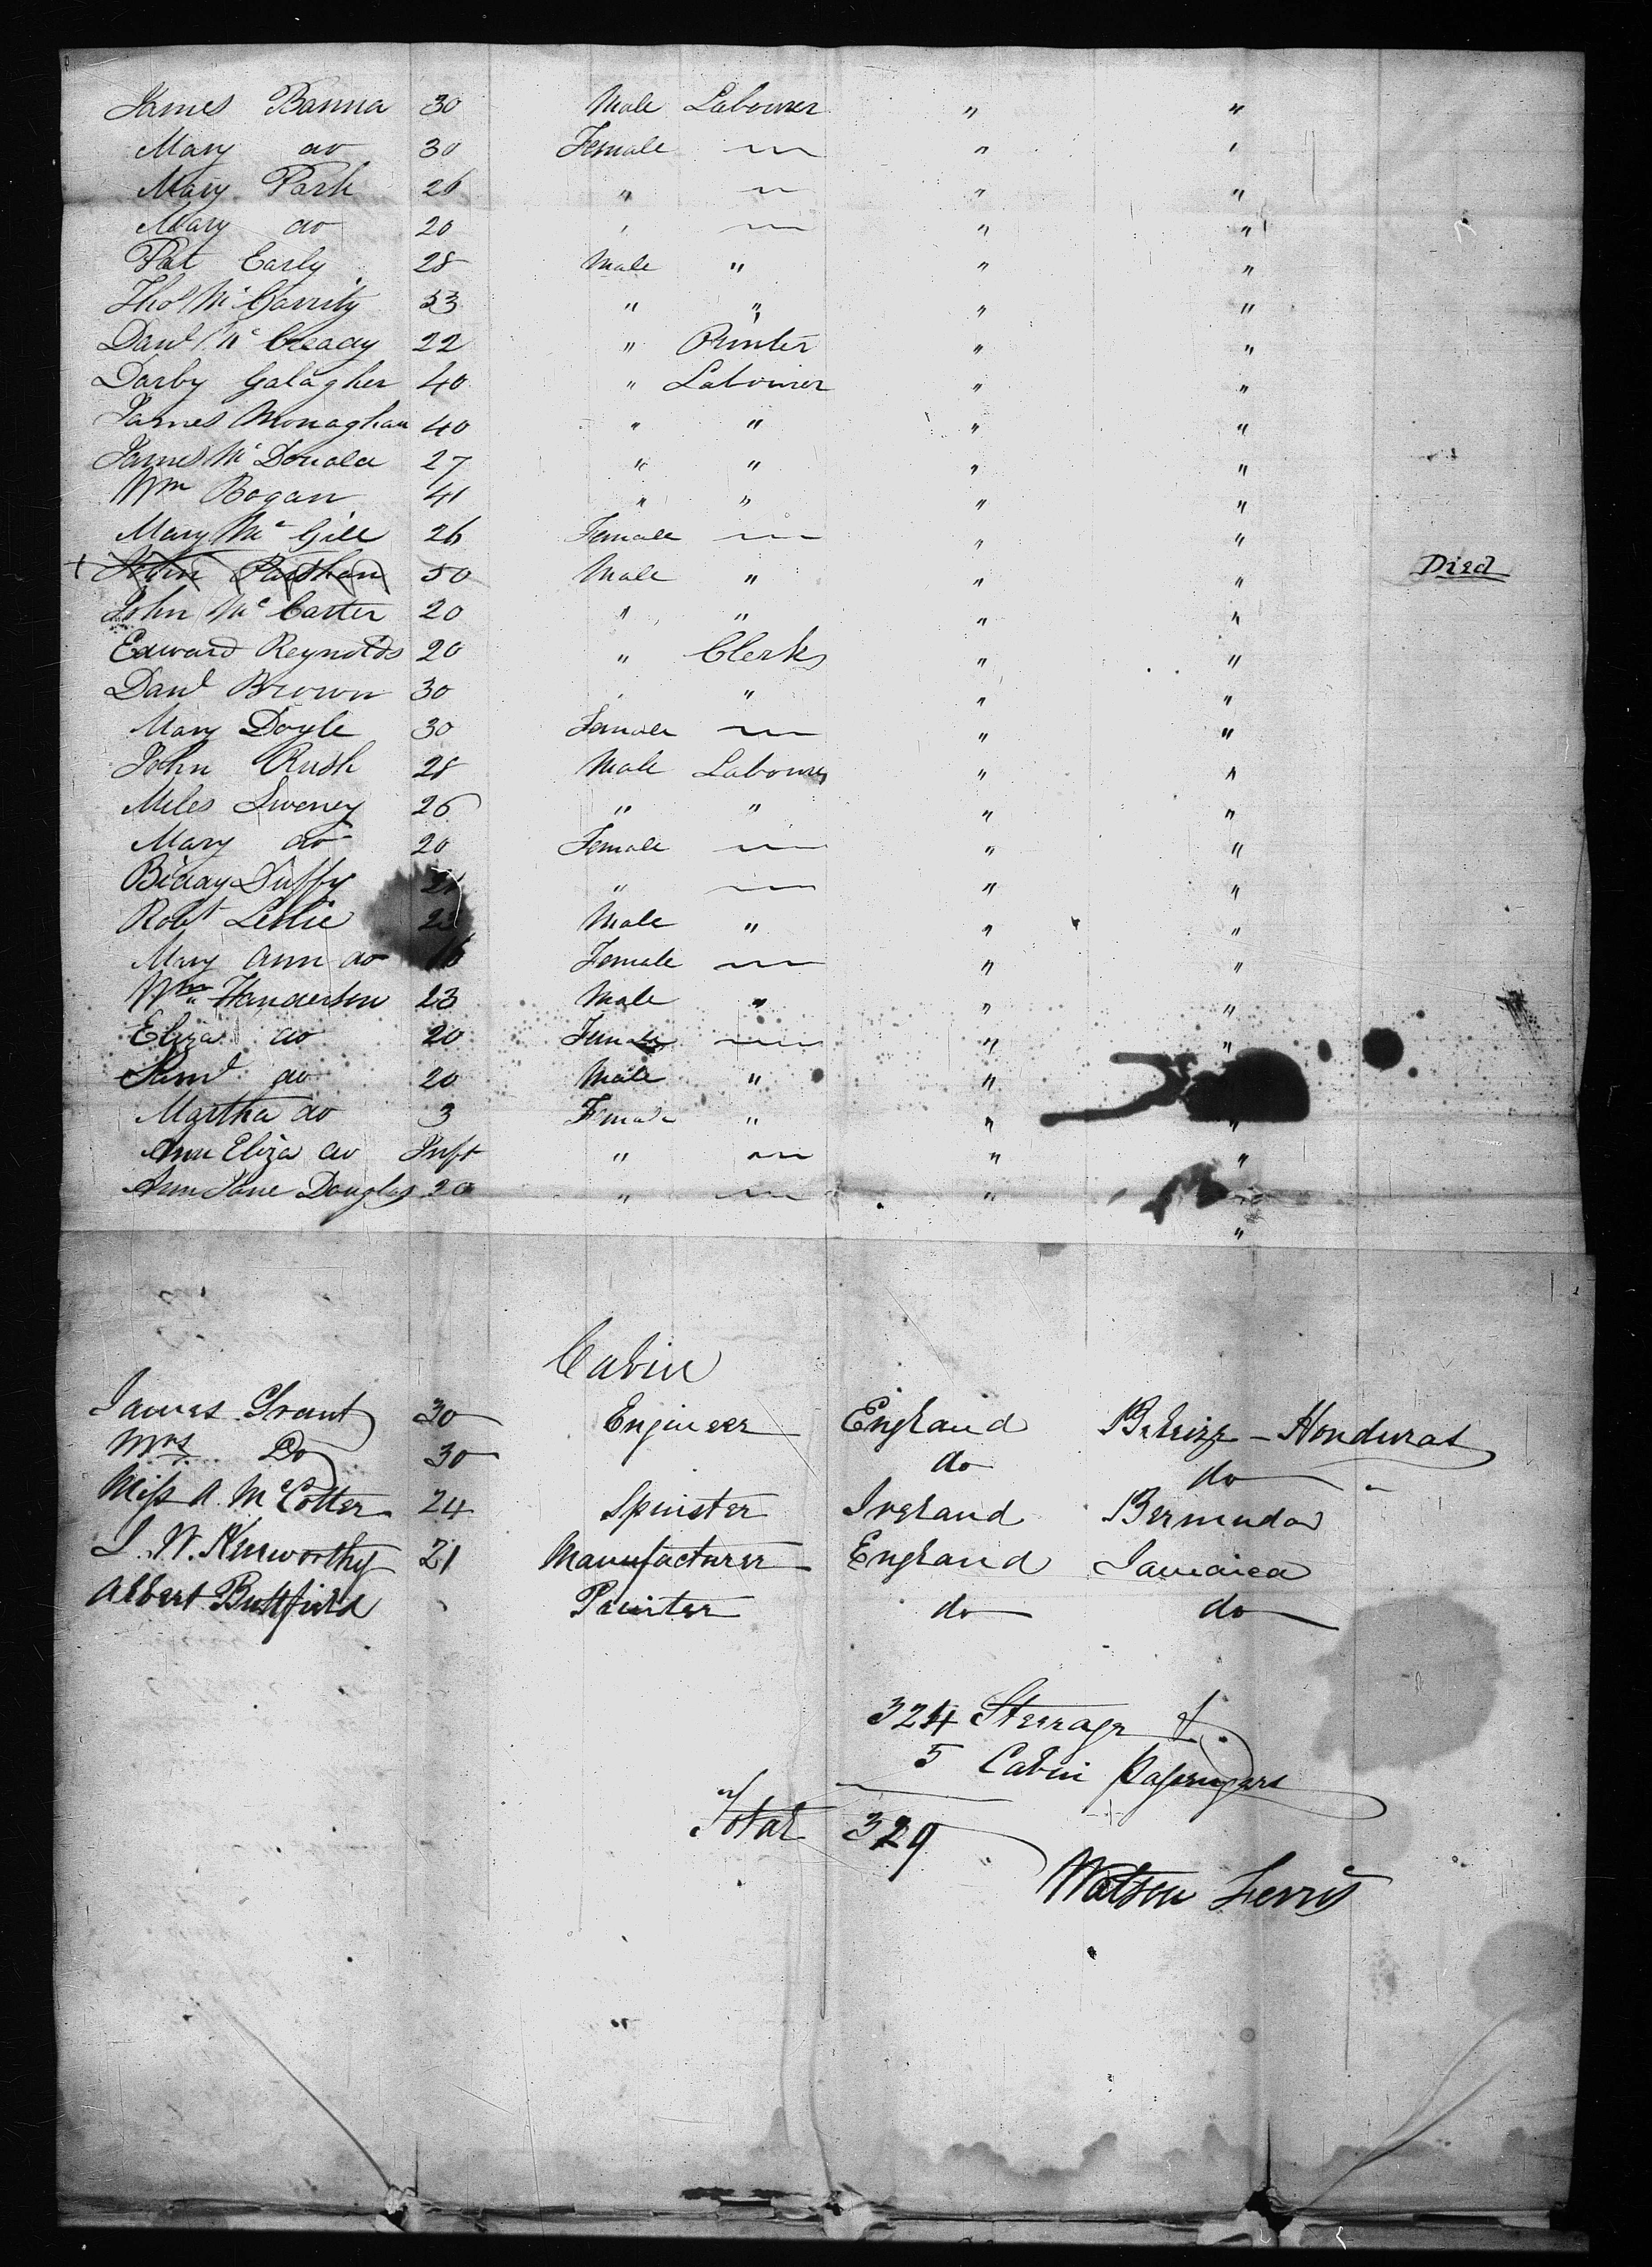 James Banna 30 Male Labourer " "
Mary do 30 Female " "
Mary Park 26 " " "
Mary do 20 " " "
Pat Early 28 Male " " "
Thos McGarrity 53 " " " "
Danl McCready 22 " Printer " "
Darby Galagher 40 " Labourer " "
James Monaghan 40 " " " "
James McDonald 27 " " " "
Wm Bogan 41 " " " "
Mary McGill 26 Female " "
John 50 Male " " " Died
John McCarter 20 " " " "
Edward Reynolds 20 " Clerk " "
Danl Brown 30 " " " "
Mary Doyle 30 Female " "
John Rush 28 Male Labourer " "
Miles Sweney 26 " " " "
Mary do 20 Female " "
Biddy Duffy " " "
Robt Leslie Male " " "
Mary Ann do 16 Female " "
Wm Handerson 23 Male " " "
Eliza do 20 Female " "
Saml do 20 Male " " "
Martha do 3 Female " " "
Ann Eliza do Inft " " "
Ann Jane Douglas 20 " " "
"
Cabin
James Grant 30 Engineer England Belize - Honduras
Mrs Do 30 do do "
Miss A. McCotter 24 Spinster Ireland Bermuda
J. W. Kenworthy 21 Manufacturer England Jamaica
Albert Buttfield Printer do do
324 Steerage &
5 Cabin Passengers
Total 329
Watson Ferris